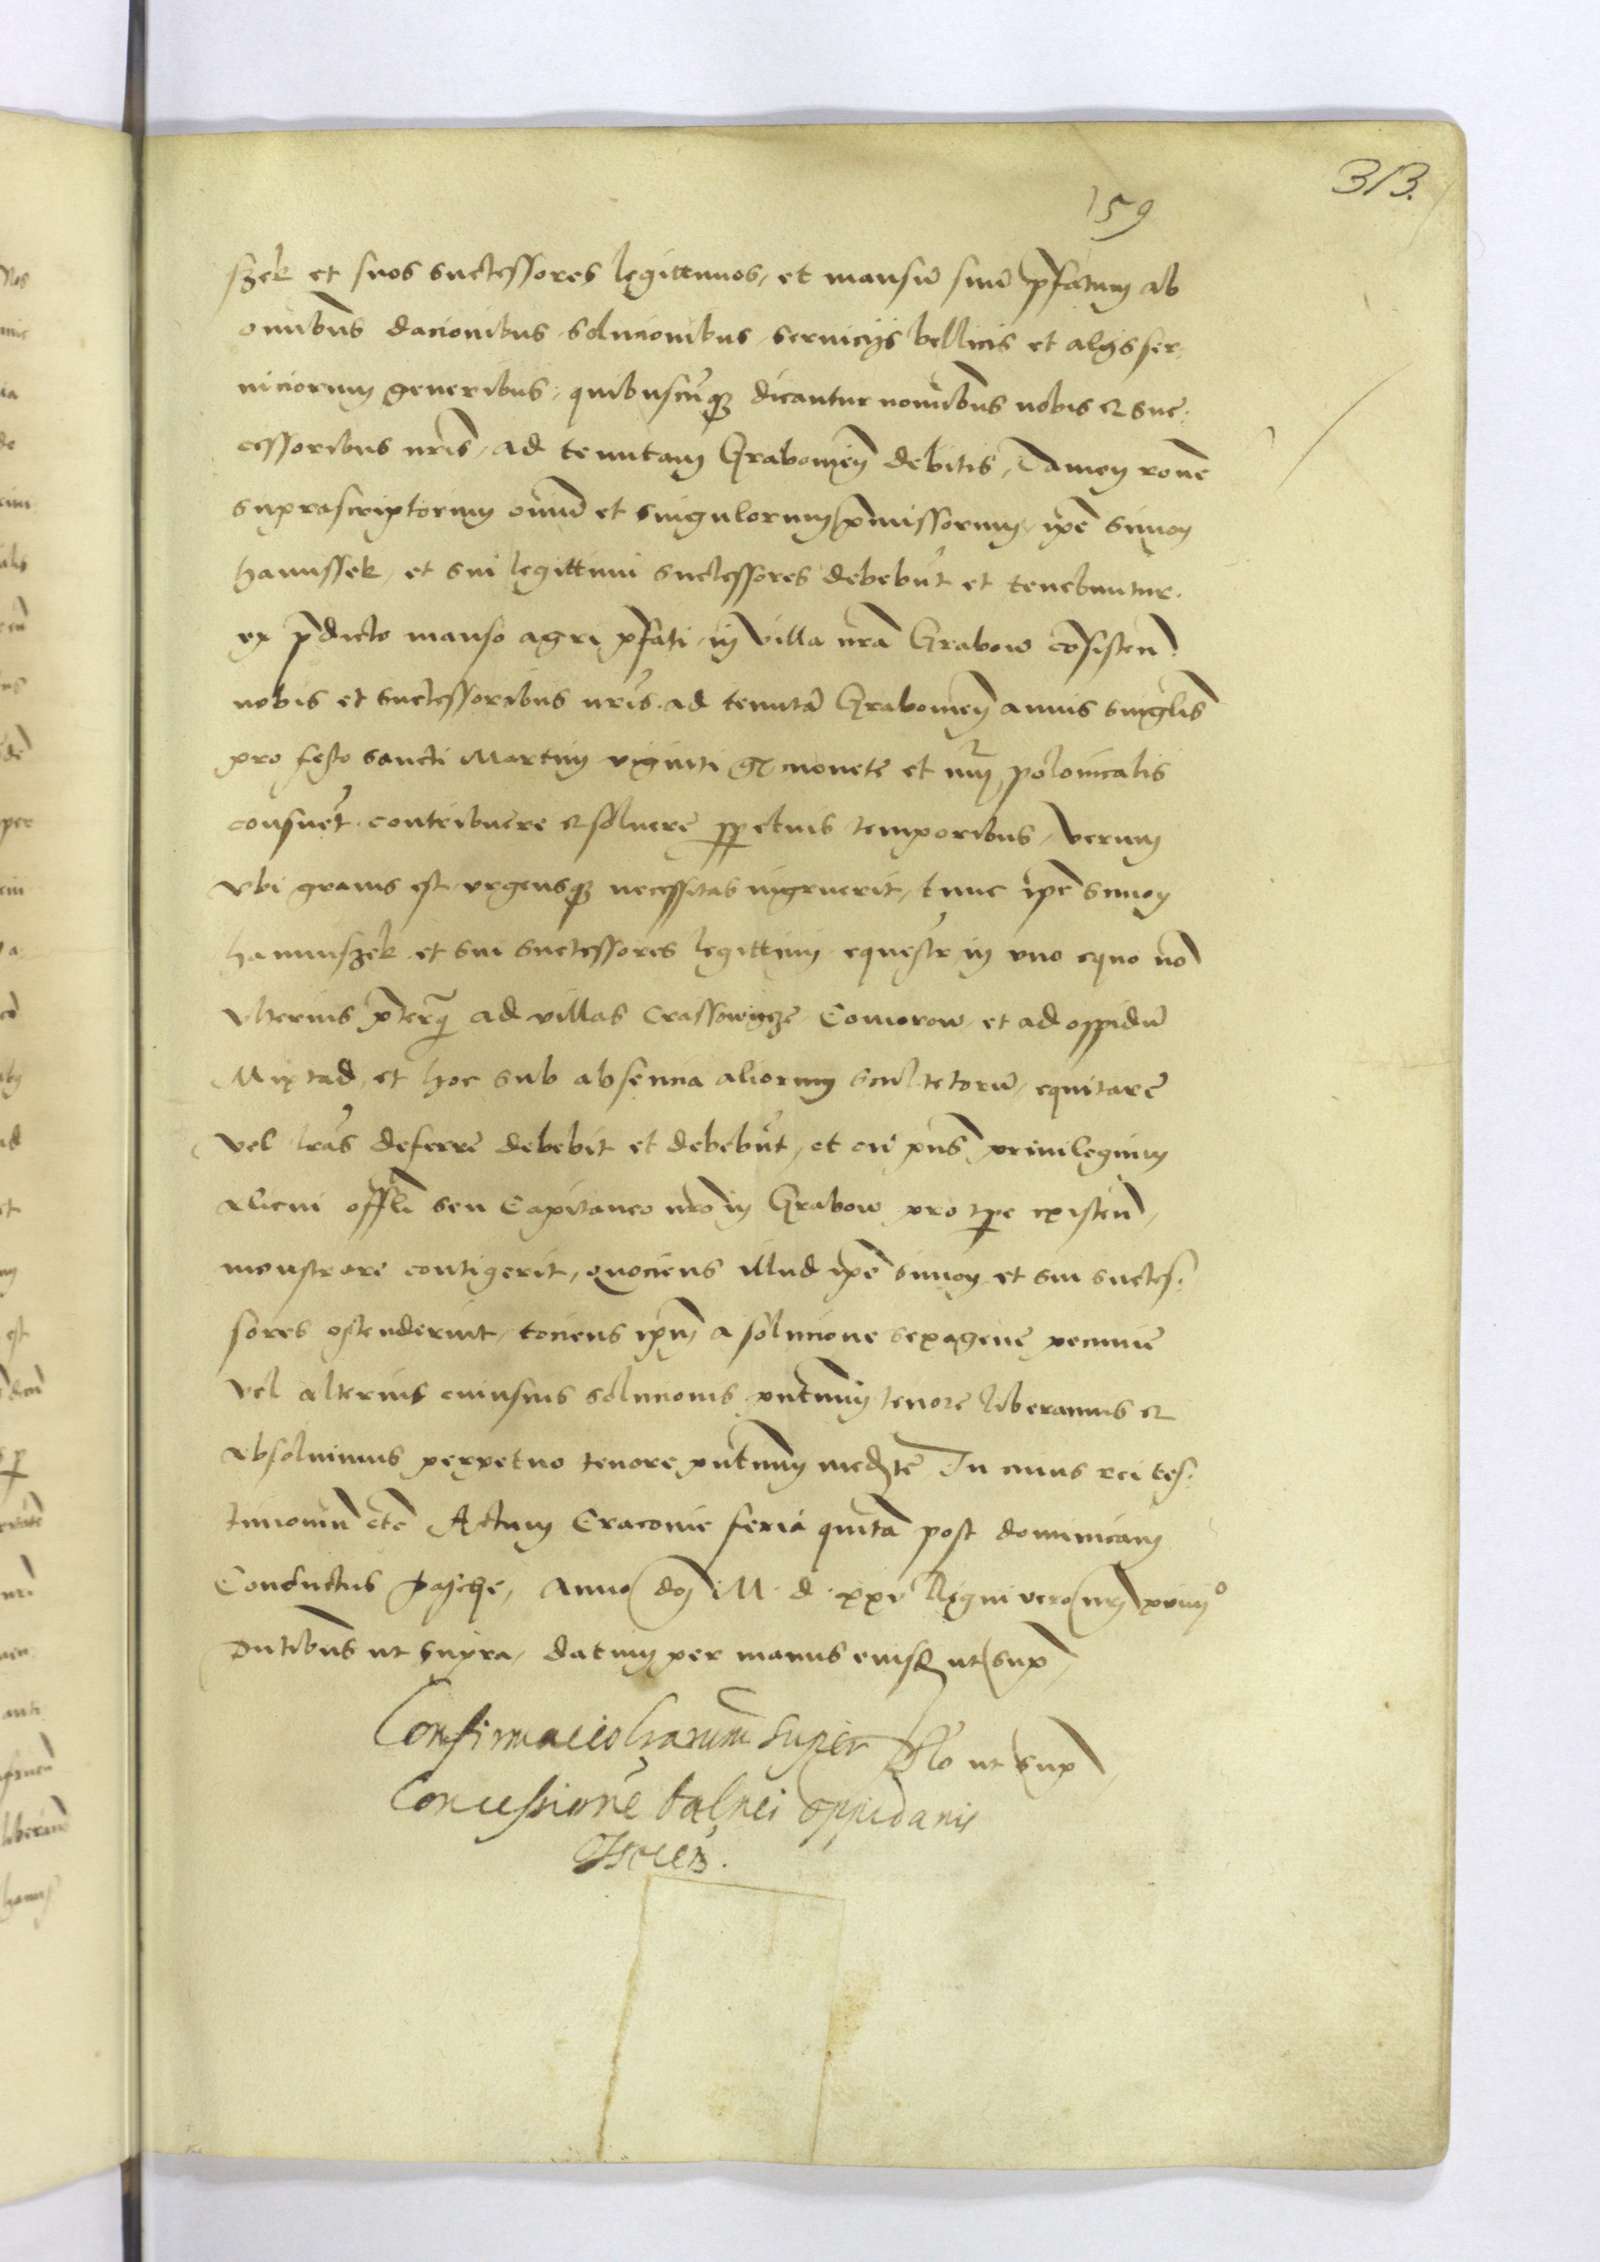 313.
159
szek et suos successores legittimos, et mansū suū p̄fatum ab
om̄ibus dacionibus solucionibus serviciis bellicis et aliis ser
viciorum generibus, quibuscūq̨ dicantur nominibus nobis et suc
cessoribus nr̄is, ad tenutam Grabowien̄ debitis, Tamen rōne
suprascriptorum om̄iū et singulorum p̄missorum, ip̄e Simon
hanussek, et sui legittimi successores debebūt et tenebuntur
ex p̄dicto manso agri p̄fati in villa nr̄a Grabow cōsisten̄
nobis et successoribus nr̄is ad tenutā Grabowien̄ annis singl̄is
pro festo sancti Martini viginti gr monete et nūi polonicalis
consuet̄ contribuere et solvere ꝑpetuis temporibus, verum
ubi gravis est urgensq̨ necessitas ingruerit, tunc ip̄e Simon
hannuszek et sui successores legittimi equestr̄ in uno equo nō
ulterius p̄terq̄ ad villas Crassowicze Comorow et ad oppidū
Mixtad, et hoc sub absencia aliorum scultetorū, equitare
vel lr̄as deferre debebit et debebūt, et cū p̄ns privilegium
alicui offl̄i seu Capitaneo nr̄o in Grabow pro tp̄e existen̄,
monstrare contigerit, quociens illud ip̄e Simon et sui succes
sores ostenderint, tociens ip̄m a solucione sexagene pecunie
vel alterius cuiusvis solucionis p̄ntium tenore liberamus et
absolvimus perpetuo tenore p̄ntium med̄te In cuius rei tes
timonium etc̄ Actum Cracovie feria quīta post dominicam
Conductus pasche, Anno dn̄i M d xxv Regni vero nr̄i xviiij°
p̄ntibus ut supra, datum per manus eiusd̄ ut supr̄
Confirmacio lr̄arum super Rl̄o ut supr̄
Concessionē balnei oppidanis